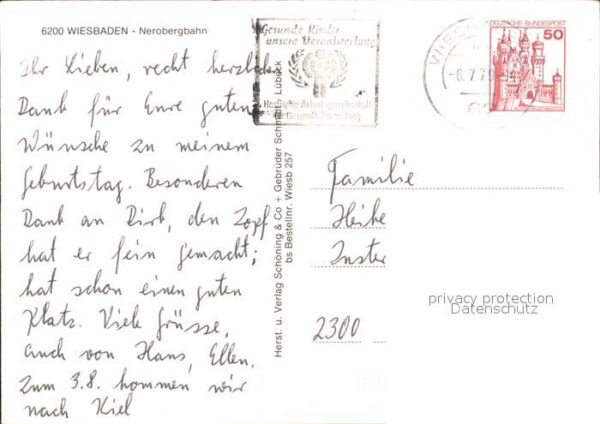 6200 WIESBADEN - Nerobergbahn
Ihr Lieben, recht herzlichen
Dank für Eure guten
Wünsche zu meinem
Geburtstag. Besonderen
Dank an Dirk, den Zopf
hat er fein gemacht;
hat schon einen guten
Platz. Viele Grüsse,
auch von Hans, Ellen.
Zum 3.8. kommen wir
nach Kiel
Herst. u. Verlag Schöning & Co + Gebrüder Schmidt, Lübeck
bs Bestellnr. Wiesb 257
Gesunde Kinder
unsere Verantwortung
Hessische Arbeitsgemeinschaft
für Gesundheitserziehung
WIESB
-6.7.79
62
DEUTSCHE BUNDESPOST
50
Familie
Heike
Inster
2300
privacy protection
Datenschutz